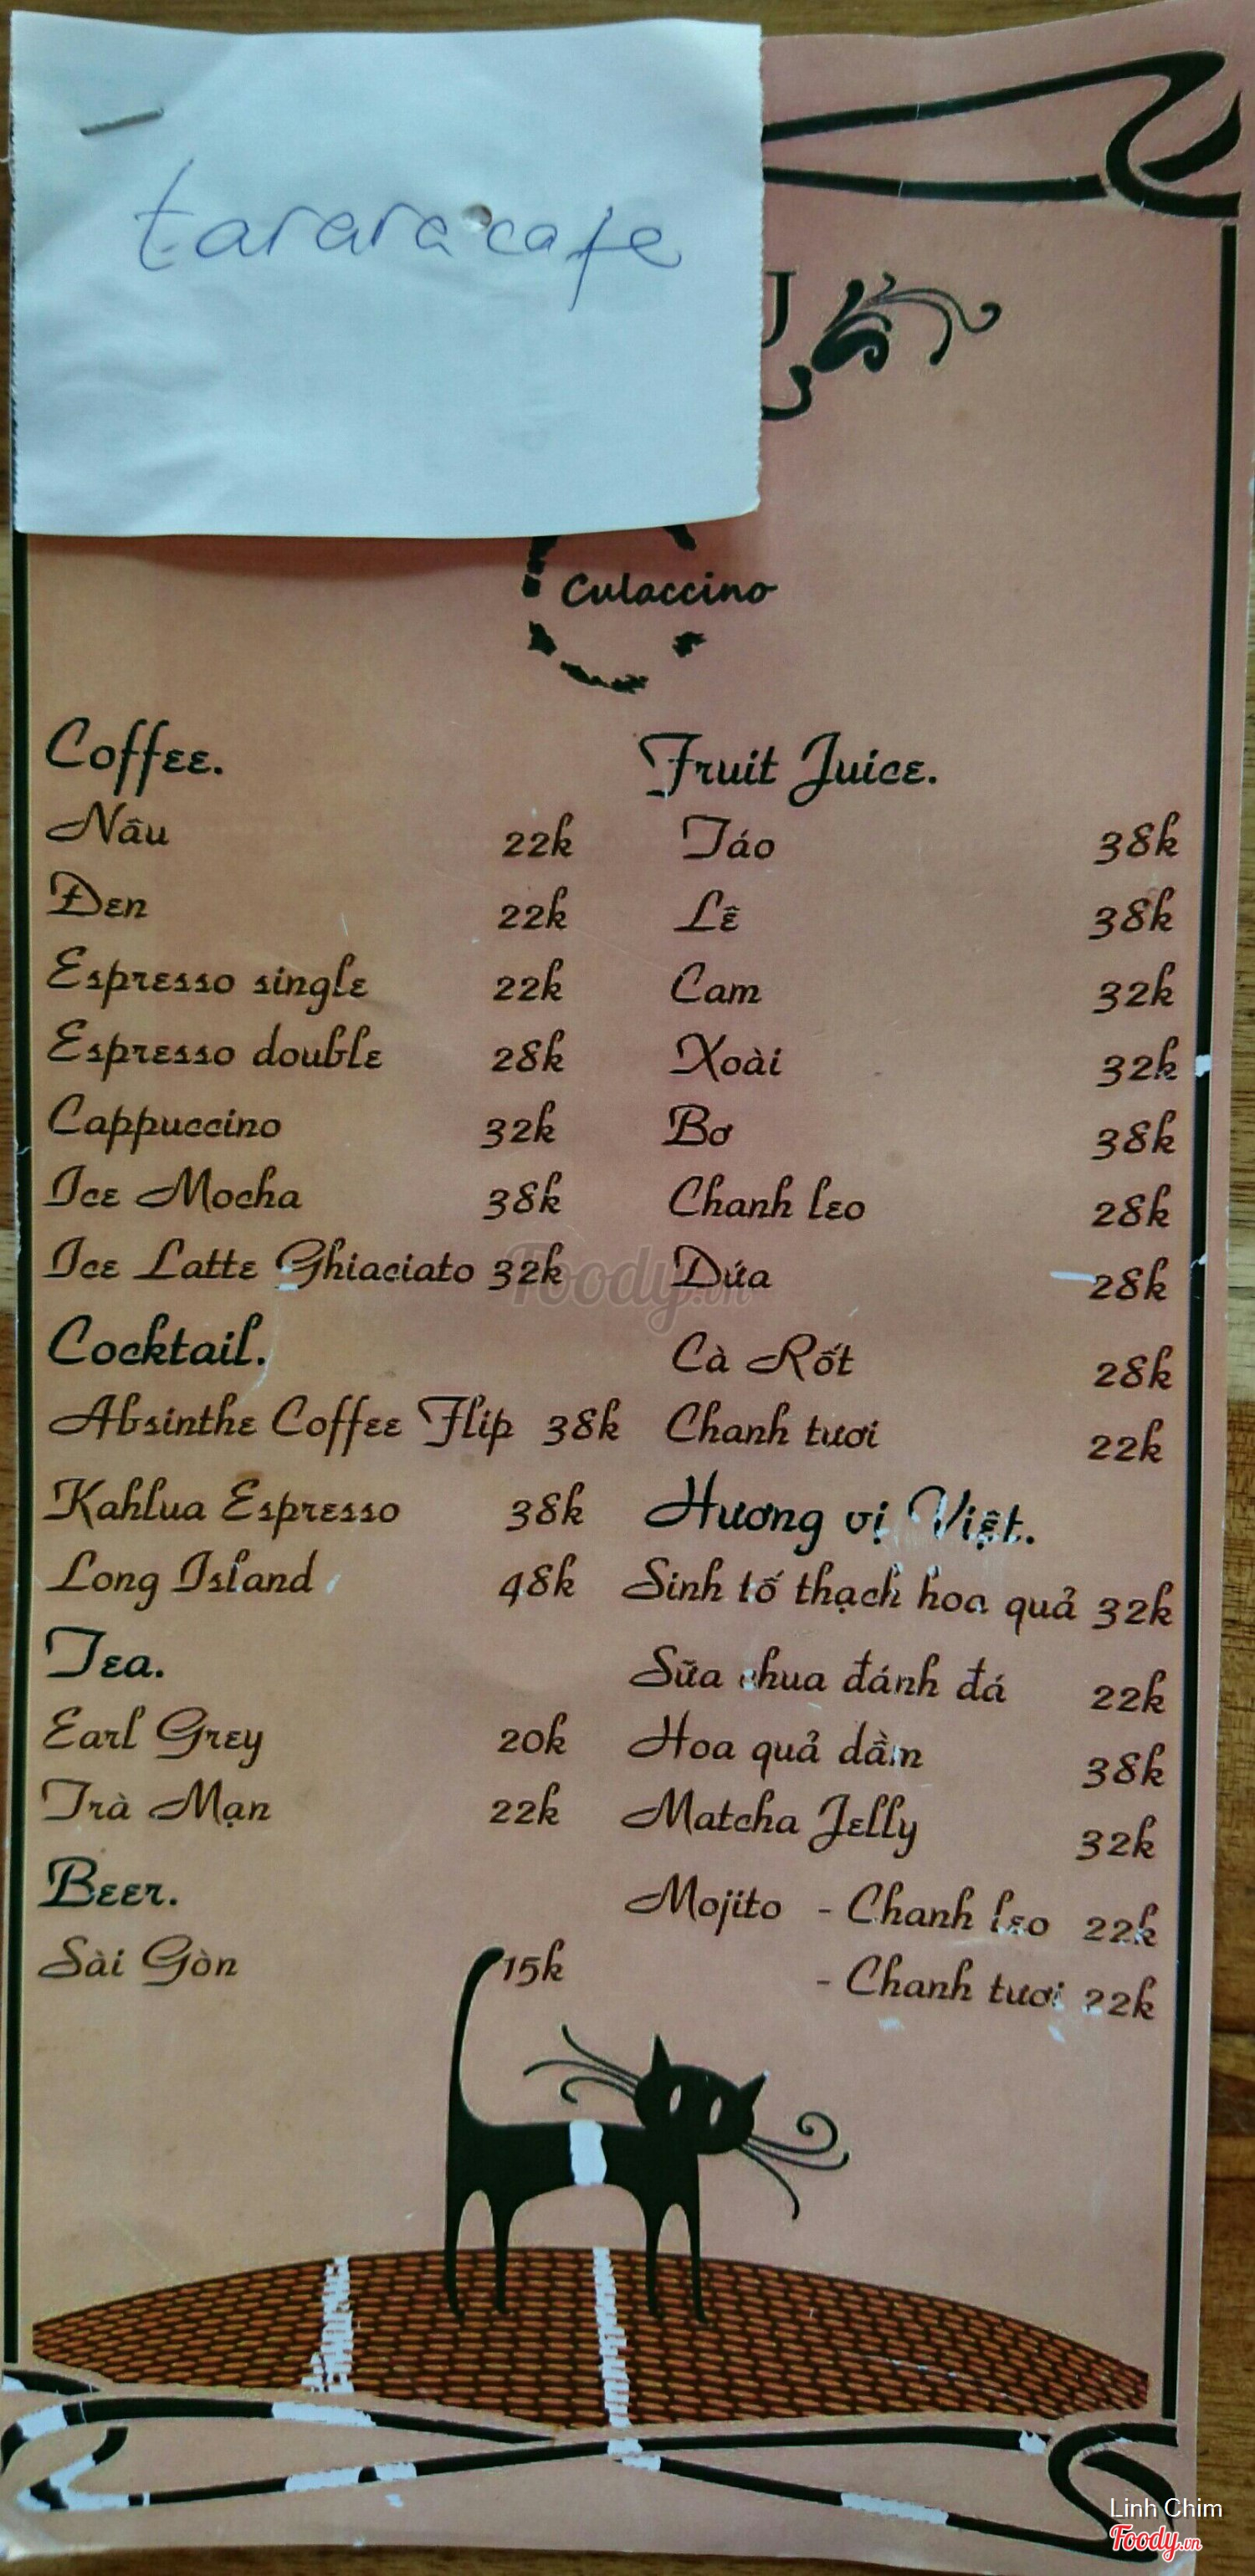 tarara cafe
Culaccino
Coffee.
Nâu 22k
Đen 22k
Espresso single 22k
Espresso double 28k
Cappuccino 32k
Ice Mocha 38k
Ice Latte Ghiaciato 32k
Cocktail.
Absinthe Coffee Flip 38k
Kahlua Espresso 38k
Long Island 48k
Tea.
Earl Grey 20k
Trà Mạn 22k
Beer.
Sài Gòn 15k
Fruit Juice.
Táo 38k
Lê 38k
Cam 32k
Xoài 32k
Bơ 38k
Chanh leo 28k
Dứa 28k
Cà Rốt 28k
Chanh tươi 22k
Hương vị Việt.
Sinh tố thạch hoa quả 32k
Sữa chua đánh đá 22k
Hoa quả dầm 38k
Matcha Jelly 32k
Mojito - Chanh leo 22k
- Chanh tươi 22k
Foody.vn
Linh Chim
Foody.vn